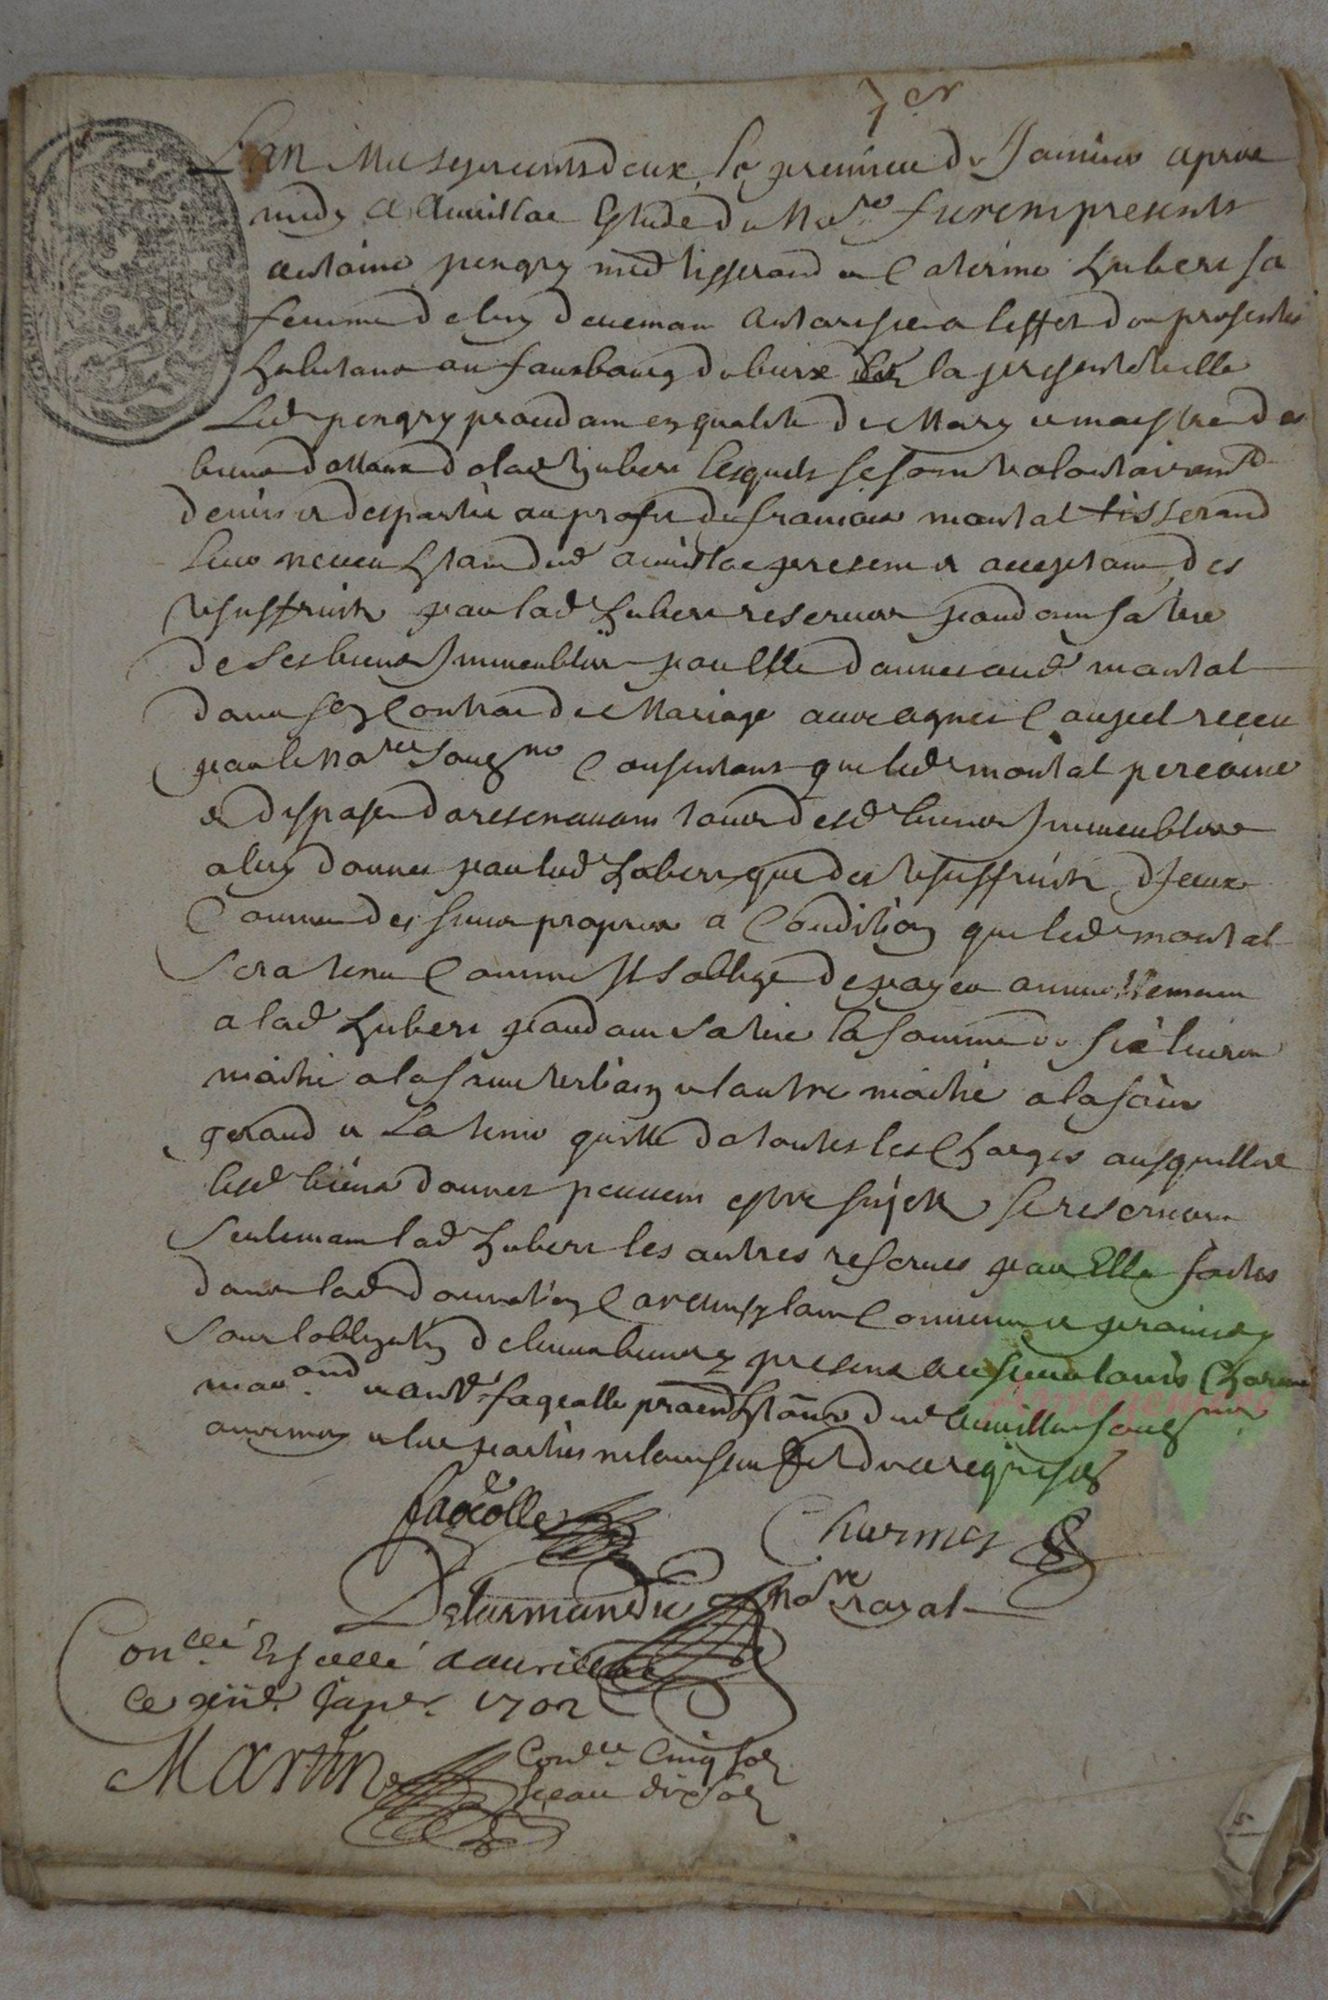 1er
L'an mil sept cents deux le premier de Janvier apres
midy a Aurillac Estude du No.re furent presents
antoine pengry md tisserand et Caterine Huberc sa
femme de luy deuemant autorisée a l'effet des presentes
habitans au fauxbourg du buixe de la presente ville
Led pengry procedant en qualité de Mary et maistre des
biens dottaux de lad Huberc lesquels se sont volontairemt
demis et despartis au profit de francois montal tisserand
leur neveu Estant dud aurillac present et acceptant des
usuffruits par lad Huberc reservés pandant sa vie
de ses biens Immeubles par Elle donnes aud montal
dans son Contrac de Mariage avec agnes receu
par le No.re sousg.né Consentant que led montal percoive
et dispose doresenavant tout desd biens Immeubles
a luy donnes par lad Huberc que des usuffruits d'Iceux
Comme des siens propres a Condition que led montal
sera tenu Comme Il s'oblige de payer annuellemant
a lad Huberc pandant sa vie la somme de six livres
moitié a la et l'autre moitié a la saint
geraud et La tenir quitte de toutes les Charges ausquelles
lesd biens donnes peuvent estre sujets se reservant
seulemant lad Huberc les autres reserves par Elle faites
dans lad donnation Car ainsy l'ont Convenu et promis
sous l'obligation de leurs biens presens
mar.and et fageolle pratn Estans dud Aurillac sousg.nes
avec moy et les parties ne l'ont sceu faire de ce requises
fageolle
Charmes
Delarmandie No.re royal
Con.llé Et scellé a aurillac
ce Janer 1702
Martin
Con.lle Cinq sols
Sceau dix sols